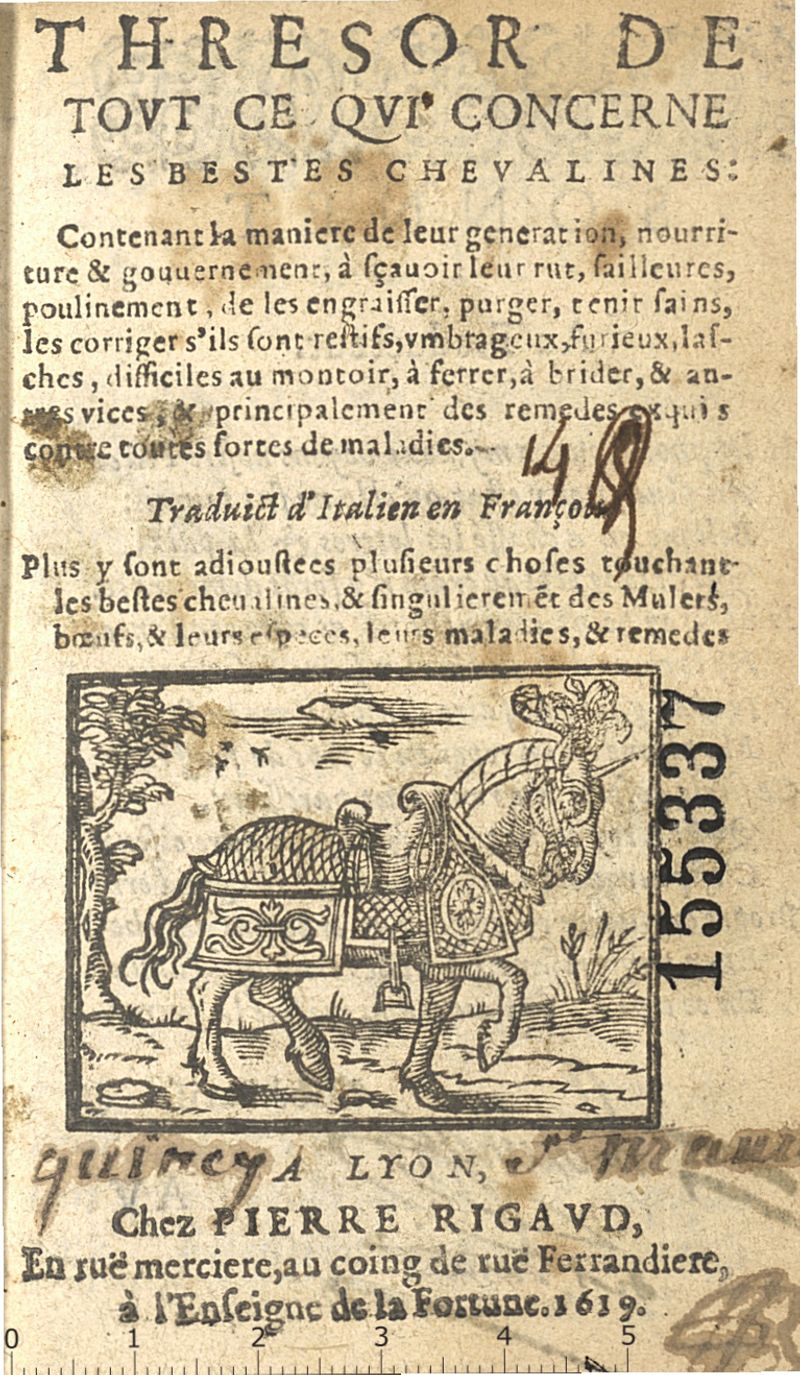 THRESOR DE
TOVT CE QVI CONCERNE
LES BESTES CHEVALINES:
Contenant la maniere de leur generation, nourri-
ture & gouuernement, à sçauoir leur rut, sailleures,
poulinement, de les engraisser, purger, tenir sains,
les corriger s'ils sont restifs, vmbrageux, furieux, las-
ches, difficiles au montoir, à ferrer, à brider, & au-
tres vices, & principalement des remedes exquis
contre toutes sortes de maladies.
14
Traduict d'Italien en François
Plus y sont adioustees plusieurs choses touchant
les bestes cheualines, & singulieremẽt des Mulets,
bœufs, & leurs especes, leurs maladies, & remedes
155337
quincy
A LYON,
Chez PIERRE RIGAVD,
En ruë merciere, au coing de ruë Ferrandiere,
à l'Enseigne de la Fortune. 1619.
0 1 2 3 4 5